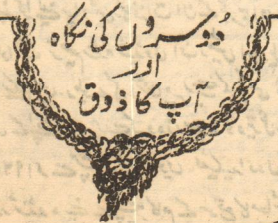 دُوسروں کی نگاہ
اور
آپ کا ذوق